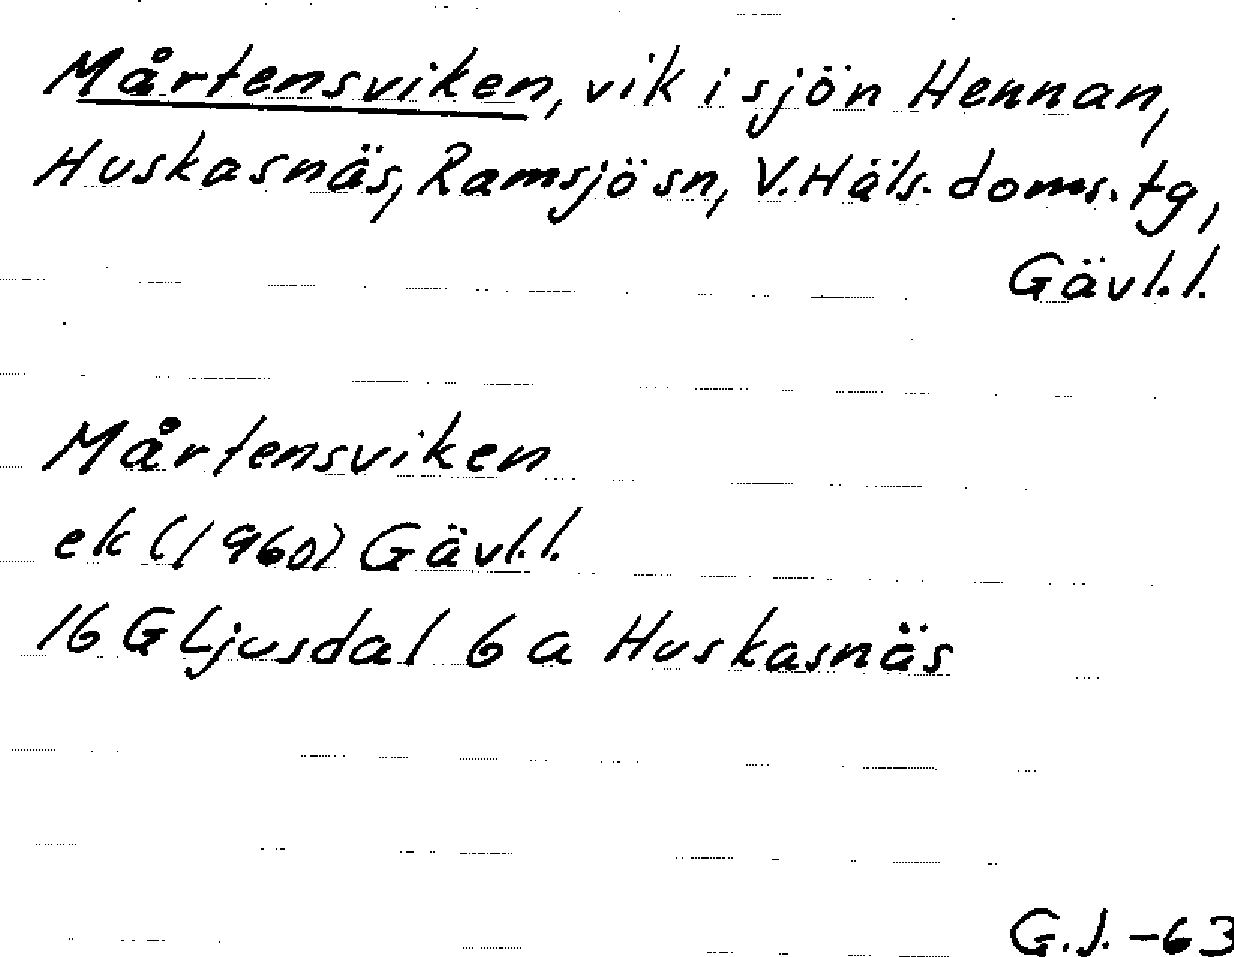 Mårtensviken, vik i sjön Hennan,
Huskasnäs, Ramsjö sn, V. Häls. doms. tg,
Gävl. l.
Mårtensviken
ek (1960) Gävl. l.
16 G Ljusdal 6 a Huskasnäs
G.J. -63